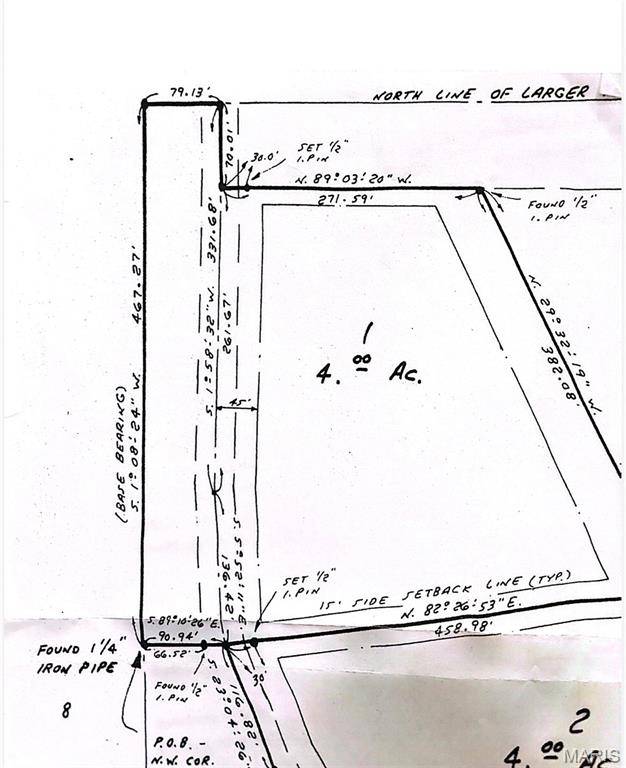 79.13'
NORTH LINE OF LARGER
70.01'
30.0'
SET 1/2"
I. PIN
N. 89° 03' 20" W.
271.59'
FOUND 1/2"
I. PIN
467.27'
331.68'
S. 1° 58' 32" W.
261.67'
N. 29° 32' 19" W.
382.08'
1
4.00 Ac.
45'
(BASE BEARING)
S. 1° 08' 24" W.
136.42'
S. 5° 52' 11" E.
SET 1/2"
I. PIN
15' SIDE SETBACK LINE (TYP.)
N. 82° 26' 53" E.
458.98'
S. 89° 10' 26" E.
90.94'
66.52'
FOUND 1 1/4"
IRON PIPE
FOUND 1/2"
I. PIN
30'
116.82'
S. 23° 04' 26"
8
P.O.B. -
N.W. COR.
2
4.00 Ac
MARIS